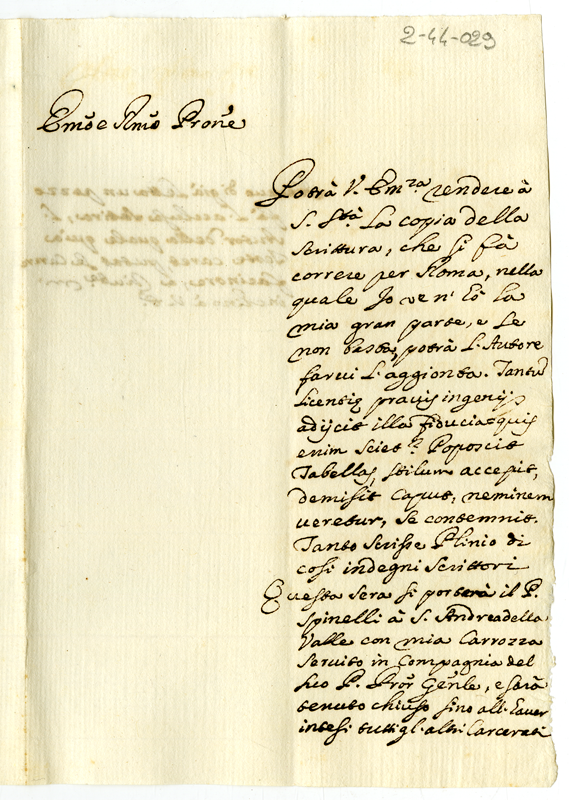 2-44-029
Emo e Rmo Prone
Potrà V. Emza rendere à
S. Stà La copia della
Scrittura, che si fà
correre per Roma, nella
quale Jo ve n' hò La
mia gran parte, e se
non basta, potrà L'Autore
farvi L'aggionta. Tantũ
Licentiæ pravis ingenijs
adijcit illa fiducia: quis
enim sciet? Poposcit
Tabellas, stilum accepit,
demisit caput, neminem
veretur, se contemnit.
Tanto scrisse Plinio di
cosi indegni scrittori
Questa sera si porterà il P.
Spinelli à S. Andrea della
Valle con mia Carrozza
servito in Compagnia del
suo P. Pror Genle, e sarà
tenuto chiuso sino all'haver
intesi tutti gl'altri Carcerati